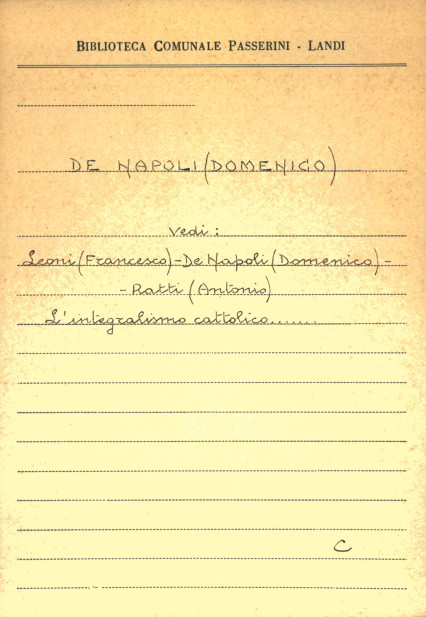 BIBLIOTECA COMUNALE PASSERINI - LANDI
DE NAPOLI (DOMENICO)
Vedi :
Leoni (Francesco) - De Napoli (Domenico) -
- Ratti (Antonio)
L'integralismo cattolico.......
C